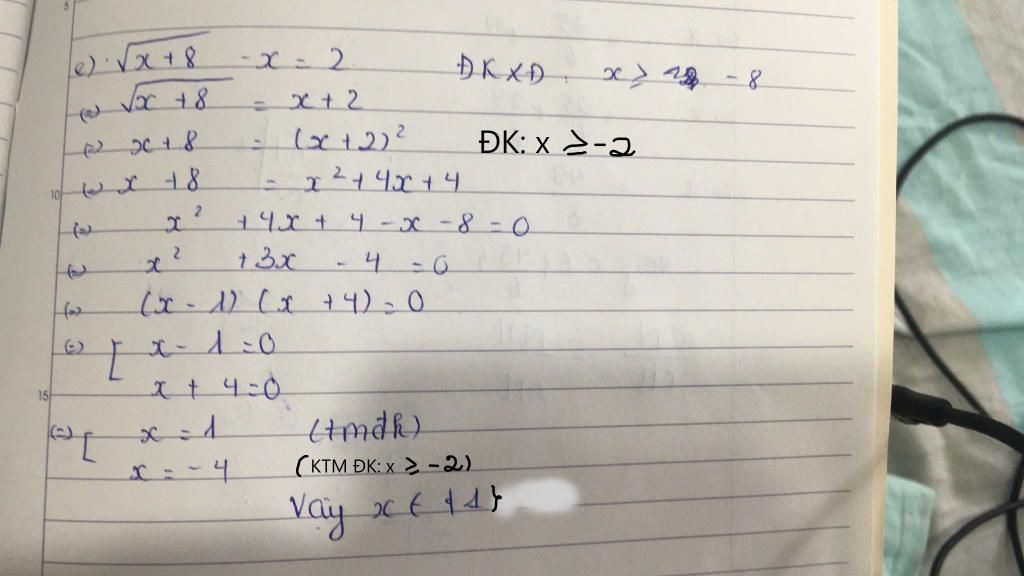 e) √x+8 - x = 2 ĐKXĐ: x ≥ -8
(=) √x+8 = x+2
(=) x+8 = (x+2)² ĐK: x ≥ -2
(=) x +8 = x²+4x+4
(=) x² +4x + 4 -x -8 = 0
(=) x² +3x - 4 = 0
(=) (x - 1) (x +4) = 0
(=) [ x - 1 = 0
x + 4 = 0
(=) [ x = 1 (tmđk)
x = -4 (KTM ĐK: x ≥ -2)
Vậy x ∈ {1}
5
10
15